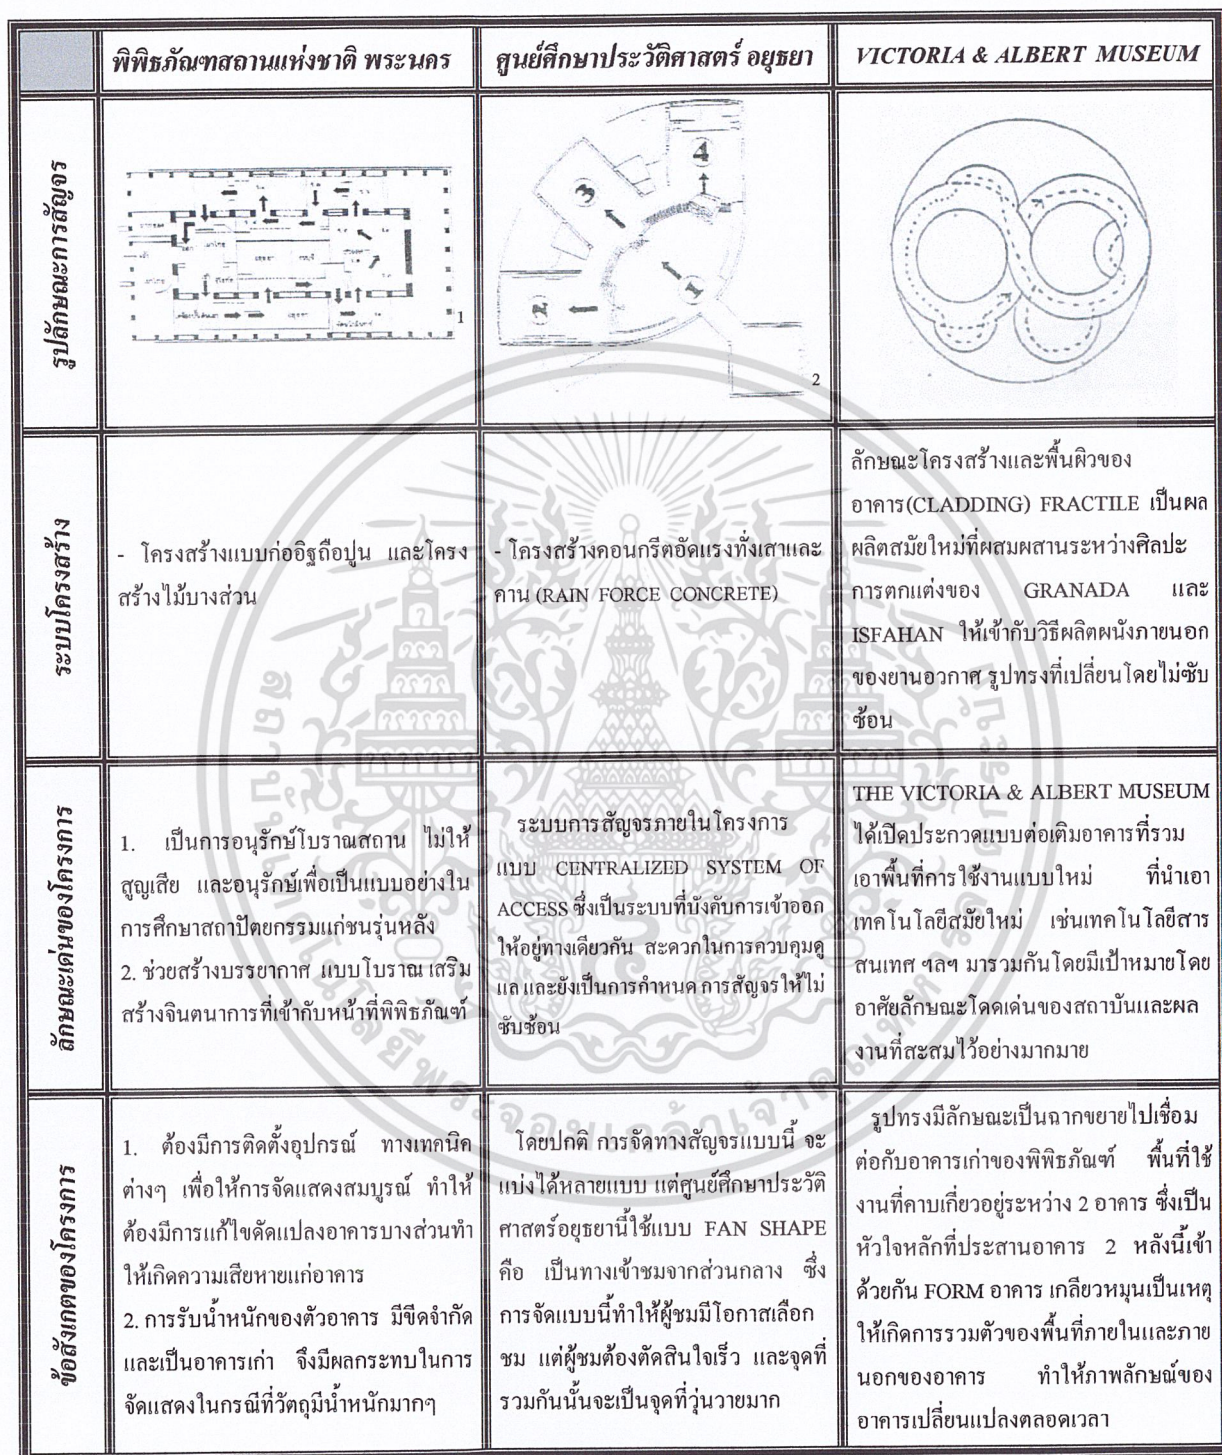 พิพิธภัณฑสถานแห่งชาติ พระนคร
ศูนย์ศึกษาประวัติศาสตร์ อยุธยา
VICTORIA & ALBERT MUSEUM
รูปลักษณะการสัญจร
1
1
2
3
4
2
ระบบโครงสร้าง
- โครงสร้างแบบก่ออิฐถือปูน และโครง
สร้างไม้บางส่วน
- โครงสร้างคอนกรีตอัดแรงทั้งเสาและ
คาน (RAIN FORCE CONCRETE)
ลักษณะโครงสร้างและพื้นผิวของ
อาคาร(CLADDING) FRACTILE เป็นผล
ผลิตสมัยใหม่ที่ผสมผสานระหว่างศิลปะ
การตกแต่งของ GRANADA และ
ISFAHAN ให้เข้ากับวิธีผลิตผนังภายนอก
ของยานอวกาศ รูปทรงที่เปลี่ยนโดยไม่ซับ
ซ้อน
ลักษณะเด่นของโครงการ
1. เป็นการอนุรักษ์โบราณสถาน ไม่ให้
สูญเสีย และอนุรักษ์เพื่อเป็นแบบอย่างใน
การศึกษาสถาปัตยกรรมแก่ชนรุ่นหลัง
2. ช่วยสร้างบรรยากาศ แบบโบราณ เสริม
สร้างจินตนาการที่เข้ากับหน้าที่พิพิธภัณฑ์
ระบบการสัญจรภายในโครงการ
แบบ CENTRALIZED SYSTEM OF
ACCESS ซึ่งเป็นระบบที่บังคับการเข้าออก
ให้อยู่ทางเดียวกัน สะดวกในการควบคุมดู
แล และยังเป็นการกำหนด การสัญจรให้ไม่
ซับซ้อน
THE VICTORIA & ALBERT MUSEUM
ได้เปิดประกวดแบบต่อเติมอาคารที่รวม
เอาพื้นที่การใช้งานแบบใหม่ ที่นำเอา
เทคโนโลยีสมัยใหม่ เช่นเทคโนโลยีสาร
สนเทศ ฯลฯ มารวมกันโดยมีเป้าหมายโดย
อาศัยลักษณะโดดเด่นของสถาบันและผล
งานที่สะสมไว้อย่างมากมาย
ข้อสังเกตของโครงการ
1. ต้องมีการติดตั้งอุปกรณ์ ทางเทคนิค
ต่างๆ เพื่อให้การจัดแสดงสมบูรณ์ ทำให้
ต้องมีการแก้ไขดัดแปลงอาคารบางส่วนทำ
ให้เกิดความเสียหายแก่อาคาร
2. การรับน้ำหนักของตัวอาคาร มีขีดจำกัด
และเป็นอาคารเก่า จึงมีผลกระทบในการ
จัดแสดงในกรณีที่วัตถุมีน้ำหนักมากๆ
โดยปกติ การจัดทางสัญจรแบบนี้ จะ
แบ่งได้หลายแบบ แต่ศูนย์ศึกษาประวัติ
ศาสตร์อยุธยานี้ใช้แบบ FAN SHAPE
คือ เป็นทางเข้าชมจากส่วนกลาง ซึ่ง
การจัดแบบนี้ทำให้ผู้ชมมีโอกาสเลือก
ชม แต่ผู้ชมต้องตัดสินใจเร็ว และจุดที่
รวมกันนั้นจะเป็นจุดที่วุ่นวายมาก
รูปทรงมีลักษณะเป็นฉากขยายไปเชื่อม
ต่อกับอาคารเก่าของพิพิธภัณฑ์ พื้นที่ใช้
งานที่คาบเกี่ยวอยู่ระหว่าง 2 อาคาร ซึ่งเป็น
หัวใจหลักที่ประสานอาคาร 2 หลังนี้เข้า
ด้วยกัน FORM อาคาร เกลียวหมุนเป็นเหตุ
ให้เกิดการรวมตัวของพื้นที่ภายในและภาย
นอกของอาคาร ทำให้ภาพลักษณ์ของ
อาคารเปลี่ยนแปลงตลอดเวลา
สถาบันเทคโนโลยีพระจอมเกล้าเจ้าคุณทหารลาดกระบัง